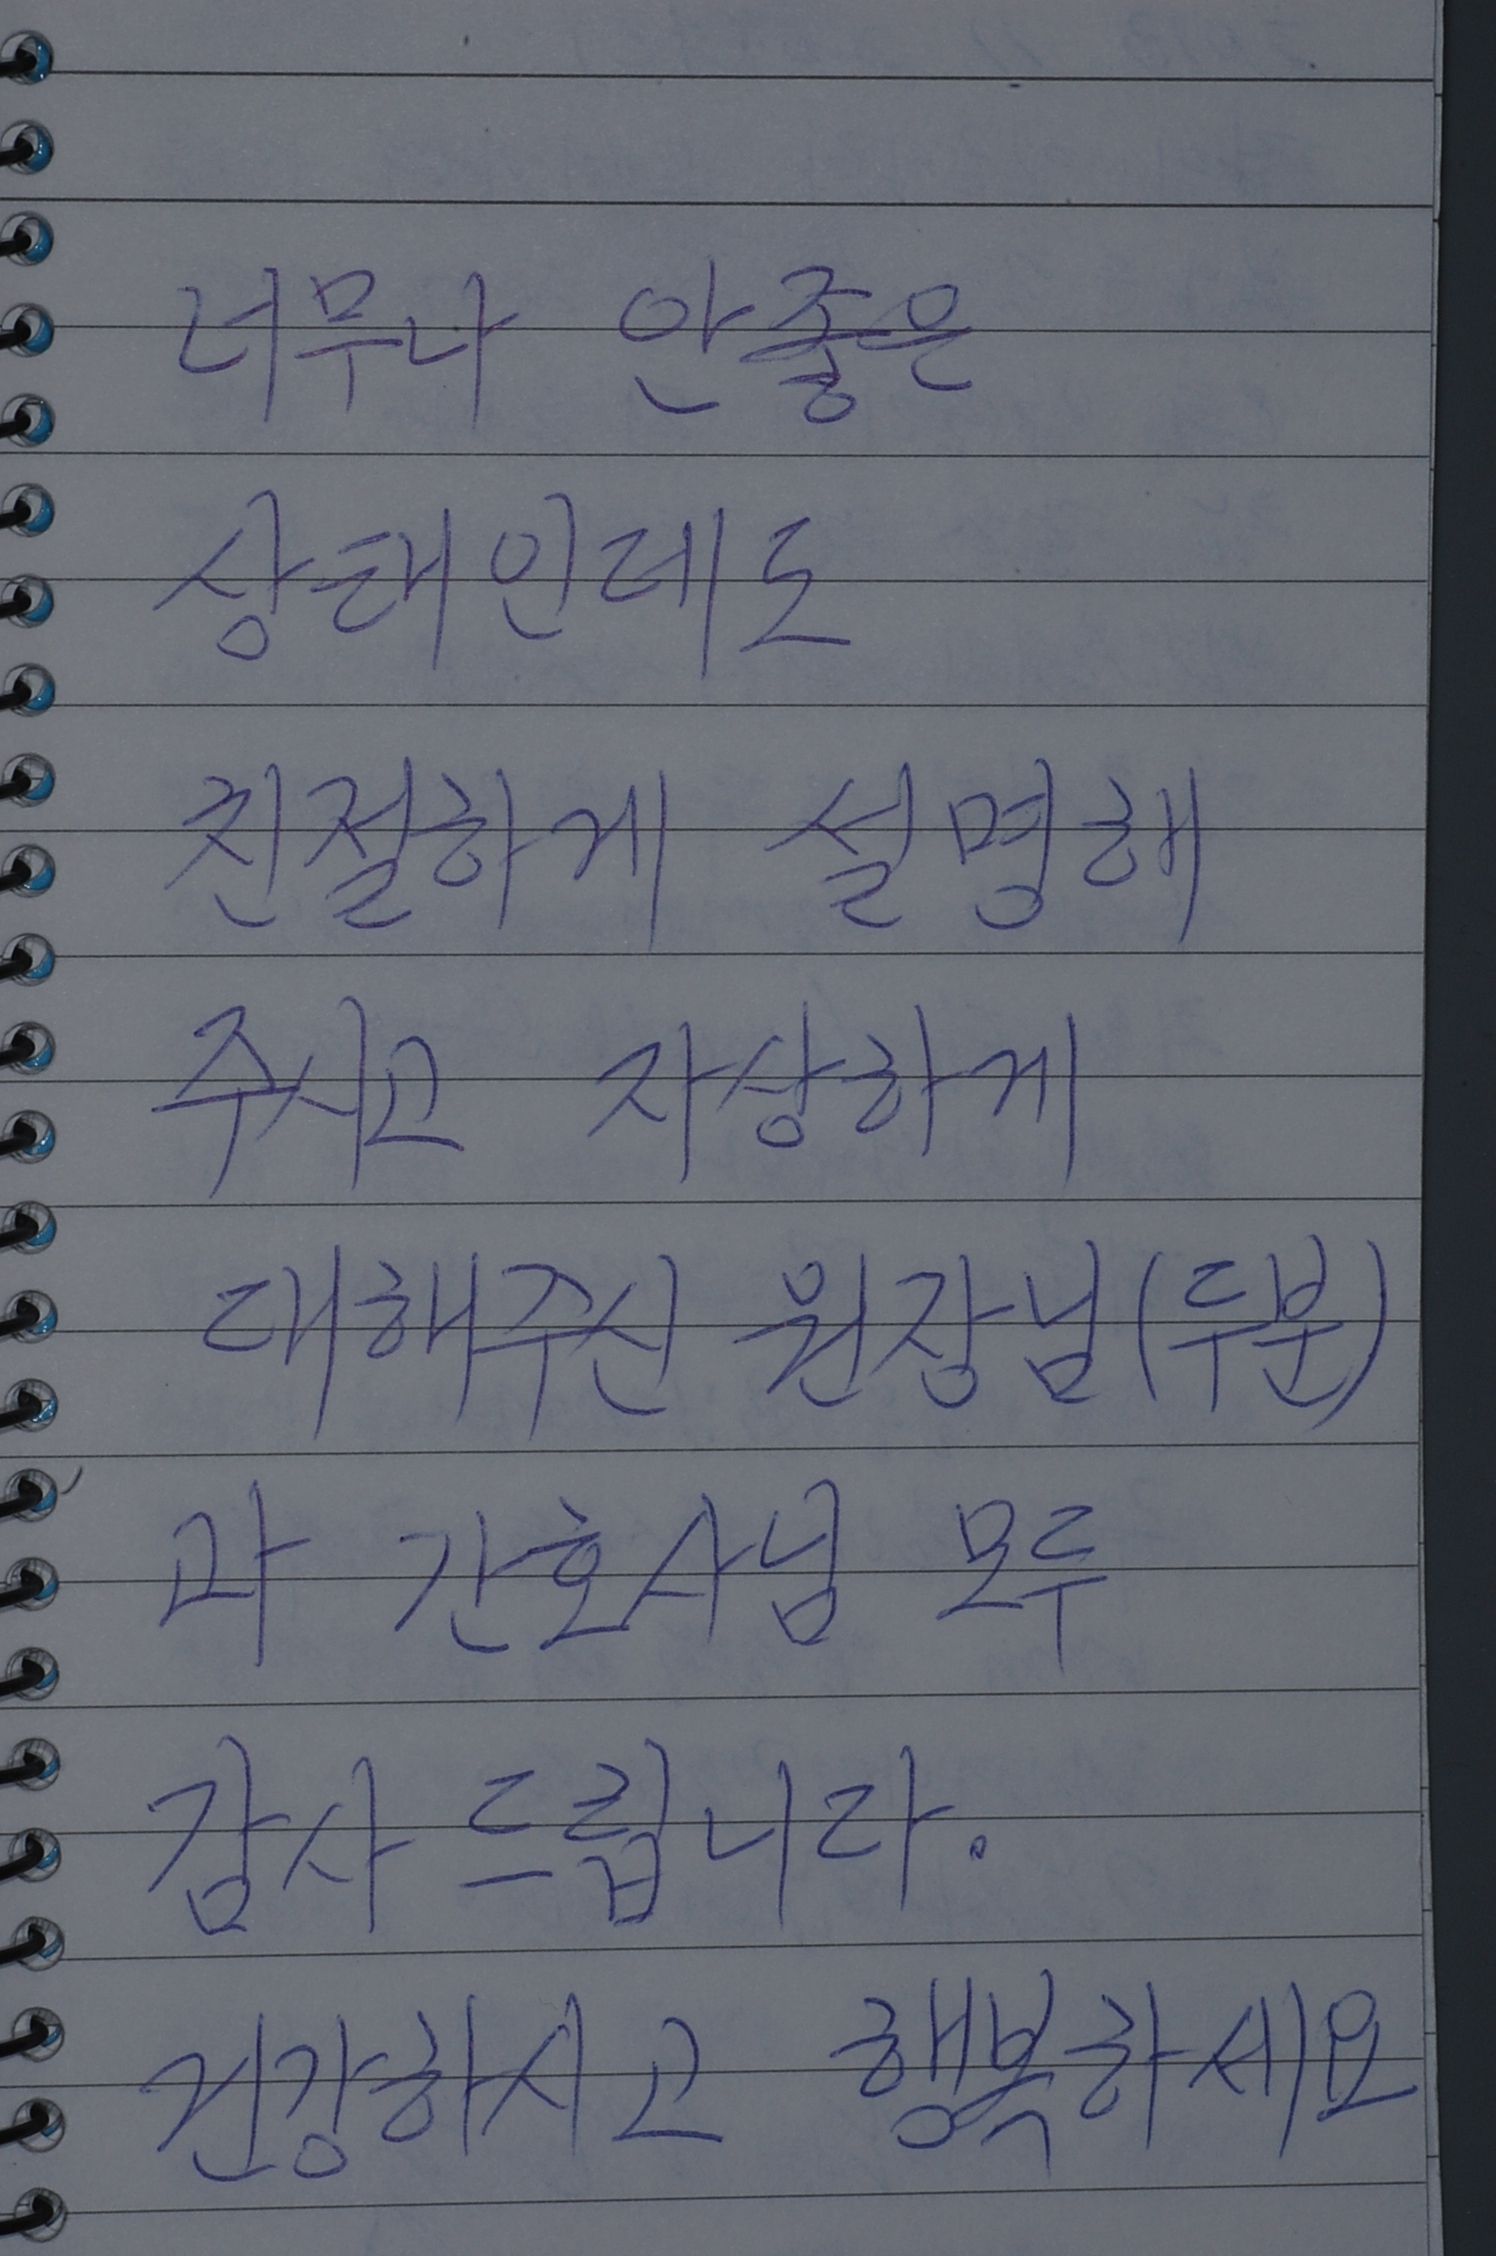 너무나 안좋은
상태인데도
친절하게 설명해
주시고 자상하게
대해주신 원장님(두분)
과 간호사님 모두
감사 드립니다.
건강하시고 행복하세요